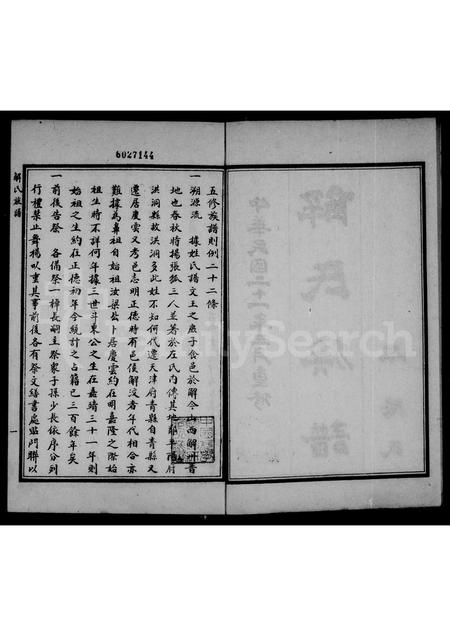 6027144
解氏族譜
五修族譜則例二十二條
一溯源流 據姓氏譜文王之庶子食邑於解今山西解州晉
地也春秋時揚張狐三人並著於左氏內傳其地即平陽府
洪洞縣故洪洞多此姓不知何代遷天津府青縣自青縣又
遷居慶雲又考邑志明正德時有邑侯解汶者年代相合亦
難據為鼻祖自始祖汝梁公卜居慶雲約在明嘉隆之際始
祖生時不詳何年據三世斗東公之生在嘉靖三十一年則
始祖之生約在正德初年今統計之占籍已三百餘年矣
一前後告祭 各備祭一棹長嗣主祭眾子孫少長依序分列
行禮禁止舞揚以重其事前後各有祭文繕書處臨門聯以
一
解氏族譜
中華民國二十一年重修
FamilySearch